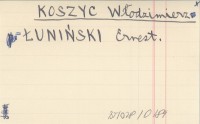 KOSZYC Włodzimierz =
= ŁUNIŃSKI Ernest.